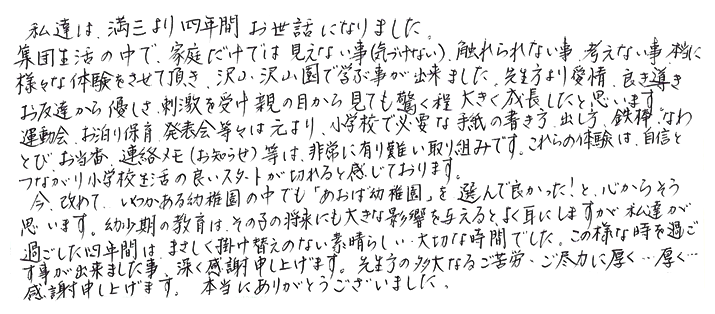 私達は、満三より四年間お世話になりました。
集団生活の中で、家庭だけでは見えない事(気づけない)、触れられない事、考えない事、本当に
様々な体験をさせて頂き、沢山、沢山園で学ぶ事が出来ました。先生方より愛情、良き導き
お友達から優しさ、刺激を受け親の目から見ても驚く程大きく成長したと思います。
運動会、お泊り保育、発表会等々は元より、小学校で必要な手紙の書き方、出し方、鉄棒、なわ
とび、お当番、連絡メモ(お知らせ)等は、非常に有り難い取り組みです。これらの体験は、自信と
つながり小学校生活の良いスタートが切れると感じております。
今、改めて、いくつかある幼稚園の中でも「あおば幼稚園」を選んで良かった!と、心からそう
思います。幼少期の教育は、その子の将来にも大きな影響を与えると、よく耳にしますが私達が
過ごした四年間は、まさしく掛け替えのない素晴らしい大切な時間でした。この様な時を過ご
す事が出来ました事、深く感謝申し上げます。先生方の多大なるご苦労、ご尽力に厚く…厚く…
感謝申し上げます。本当にありがとうございました。